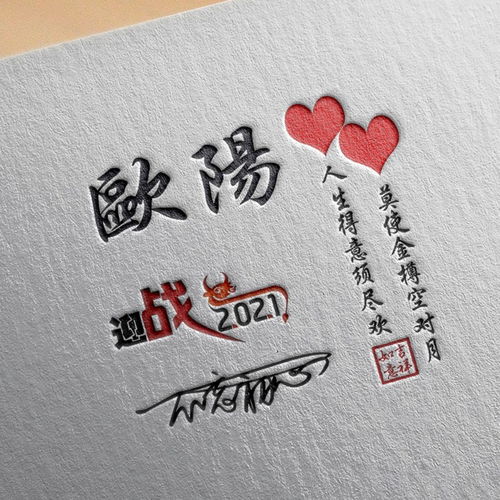 歐陽
人生得意须尽欢
莫使金樽空对月
吉祥
如意
迎战2021